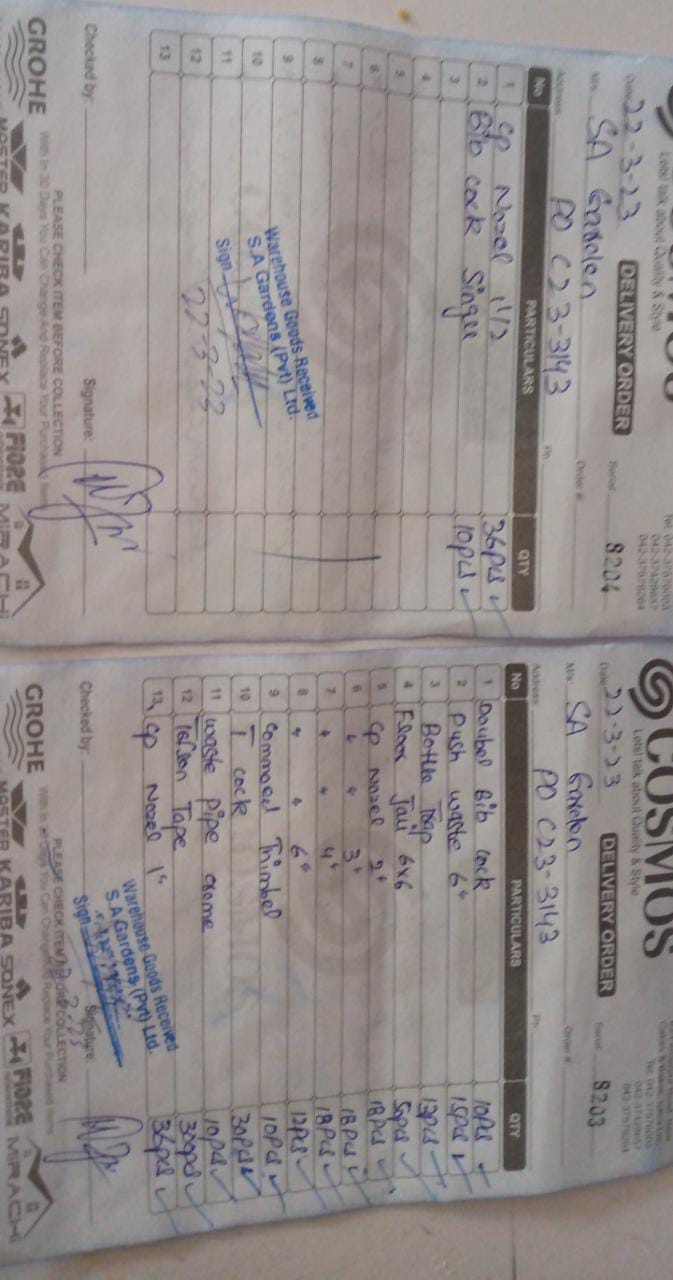 COSMOS
Lets! talk about Quality & Style
Tel: 042-37576003
042-37428657
042-37576264
DELIVERY ORDER
Date 22-3-23
Serial: 8204
M/s. SA Garden
Order #:
Address: PO C23-3143
Ph:
No PARTICULARS QTY
1 Cp Nozel 1 1/2 36pcs
2 Bib Cock Single 10pcs
3
4
5
6
7
8
9
10
11
12
13
Warehouse Goods Received
S.A Gardens (Pvt) Ltd.
Sign
22-3-23
Checked by:
Signature:
PLEASE CHECK ITEM BEFORE COLLECTION
With in 30 Days You Can Change And Replace Your Purchased Items
GROHE MASTER KARIBA SONEX FIORE MIRACHI
COSMOS
Lets! talk about Quality & Style
Tel: 042-37576003
042-37428657
042-37576264
DELIVERY ORDER
Date 22-3-23
Serial: 8203
M/s. SA Garden
Order #:
Address: PO C23-3143
Ph:
No PARTICULARS QTY
1 Doubel Bib Cock 10pcs
2 Push waste 6" 15pcs
3 Bottle Trap 13pcs
4 Floor Jali 6x6 50pcs
5 Cp Nozel 2" 18pcs
6 " " 3" 18pcs
7 " " 4" 18pcs
8 " " 6" 12pcs
9 Commod Thimbel 10pcs
10 T Cock 30pcs
11 waste pipe crome 10pcs
12 Teflon Tape 300pcs
13 Cp Nozel 1" 36pcs
Warehouse Goods Received
S.A Gardens (Pvt) Ltd.
Sign
Checked by:
Signature:
PLEASE CHECK ITEM BEFORE COLLECTION
With in 30 Days You Can Change And Replace Your Purchased Items
GROHE MASTER KARIBA SONEX FIORE MIRACHI